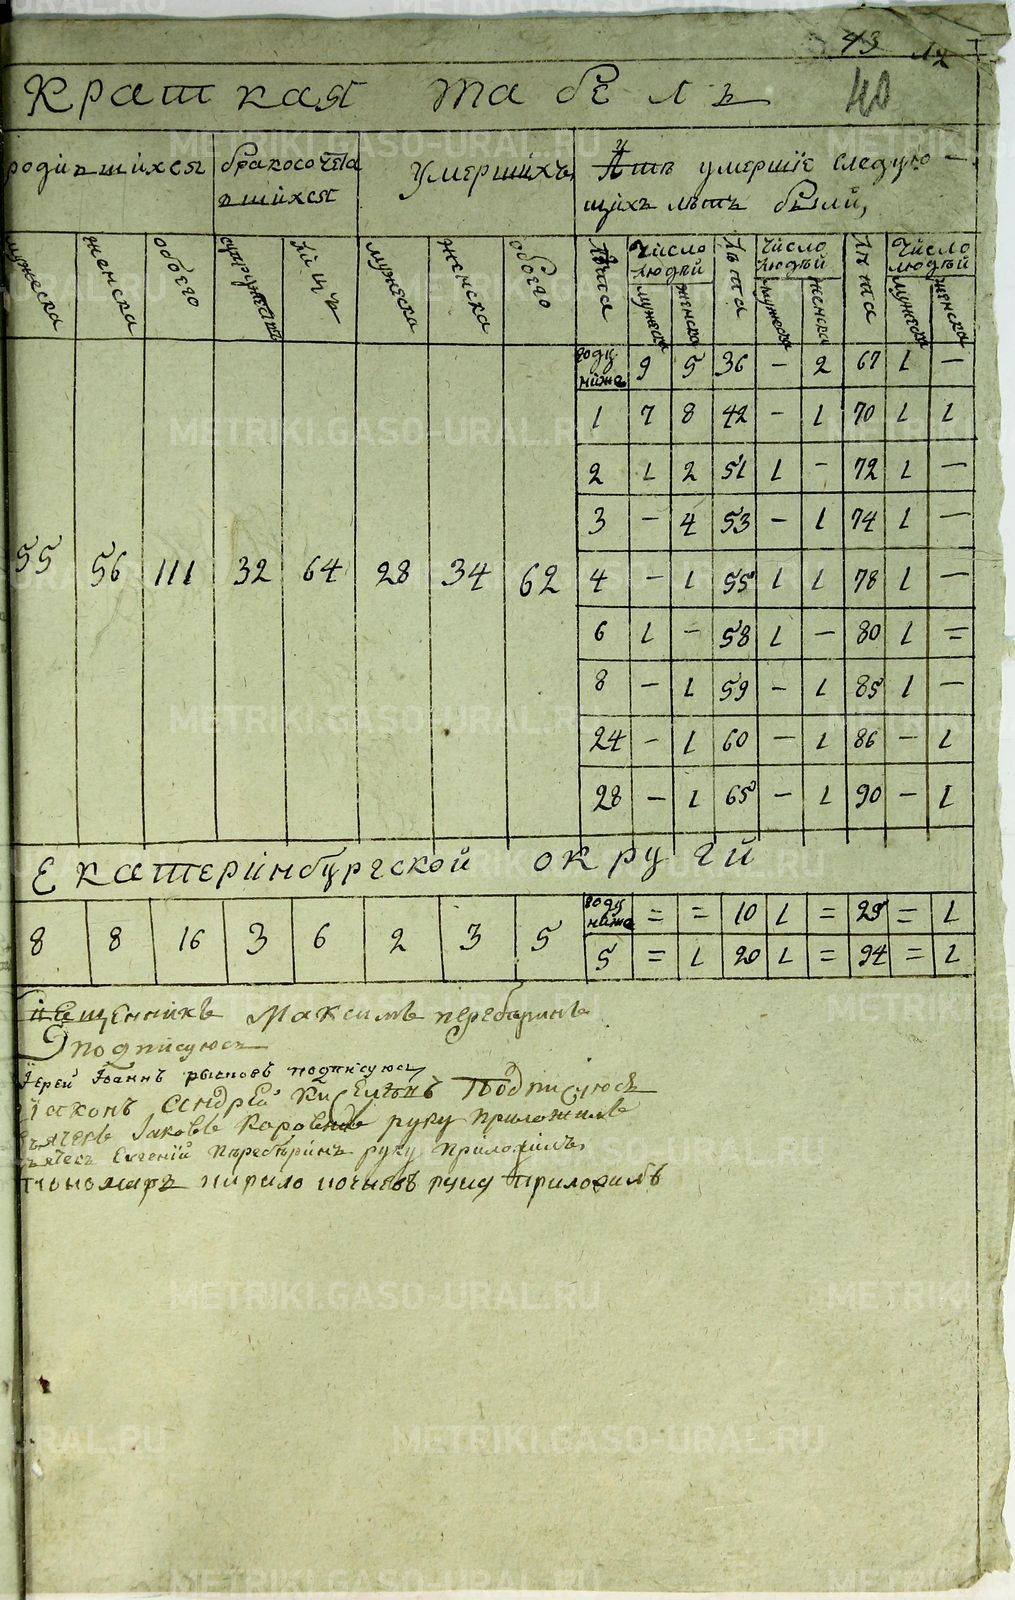 43
40
Краткая табель
родившихся бракосочета умершихъ умершiе следую
вшихся щихъ лѣтъ были,
мужеска женска обоего супружества лицъ мужеска женска обоего Лѣта Число людѣй Лѣта Число людѣй Лѣта Число людѣй
мужеска женска мужеска женска мужеска женска
году ниже 9 5 36 - 2 67 1 -
1 7 8 42 - 1 70 1 1
2 1 2 51 1 - 72 1 -
3 - 4 53 - 1 74 1 -
55 56 111 32 64 28 34 62 4 - 1 55 1 1 78 1 -
6 1 - 58 1 - 80 1 =
8 - 1 59 - 1 85 1 -
24 - 1 60 - 1 86 - 1
28 - 1 65 - 1 90 - 1
Екатеринбургской округи
8 8 16 3 6 2 3 5 году ниже = = 10 1 = 29 = 1
5 = 1 20 1 = 94 = 1
Максимъ
подписуюсь
Iерей Iоаннъ подписуюсь
Андрей Киселевъ Подписуюсь
Iаковъ руку приложилъ
Евгенiй руку приложилъ,
пономарь кирило руку приложилъ
METRIKI.GASO-URAL.RU